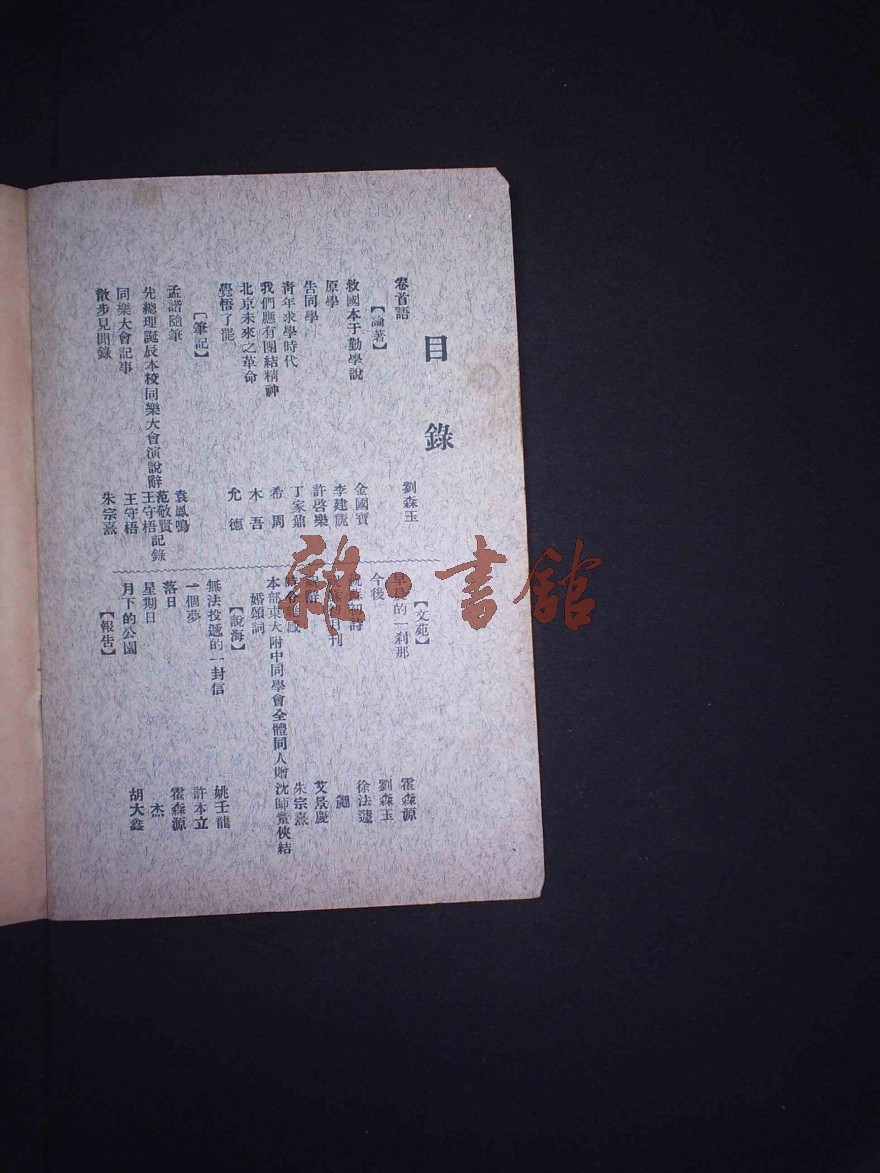 目錄
卷首語 劉森玉
【論著】
救國本于勤學說 金國寶
原學 李建
告同學 許啓樂
青年求學時代 丁家鼐
我們應有團結精神 希周
北京未來之革命 木吾
覺悟了罷 允德
【筆記】
孟諧隨筆 袁鳳鳴
先總理誕辰本校同樂大會演說辭 范敬賢 王守梧記錄
同樂大會記事 王守梧
散步見聞錄 朱宗熹
【文苑】
早晨的一剎那 霍森源
今後 劉森玉
詩 徐法
月刊
艾景慶
朱宗熹
本部東大附中同學會全體同人贈沈師黨俠結
婚頌詞
【說海】
無法投遞的一封信 姚壬龍
一個夢 許本立
落日 霍森源
星期日 杰
月下的公園 胡大鑫
【報告】
雜·書館